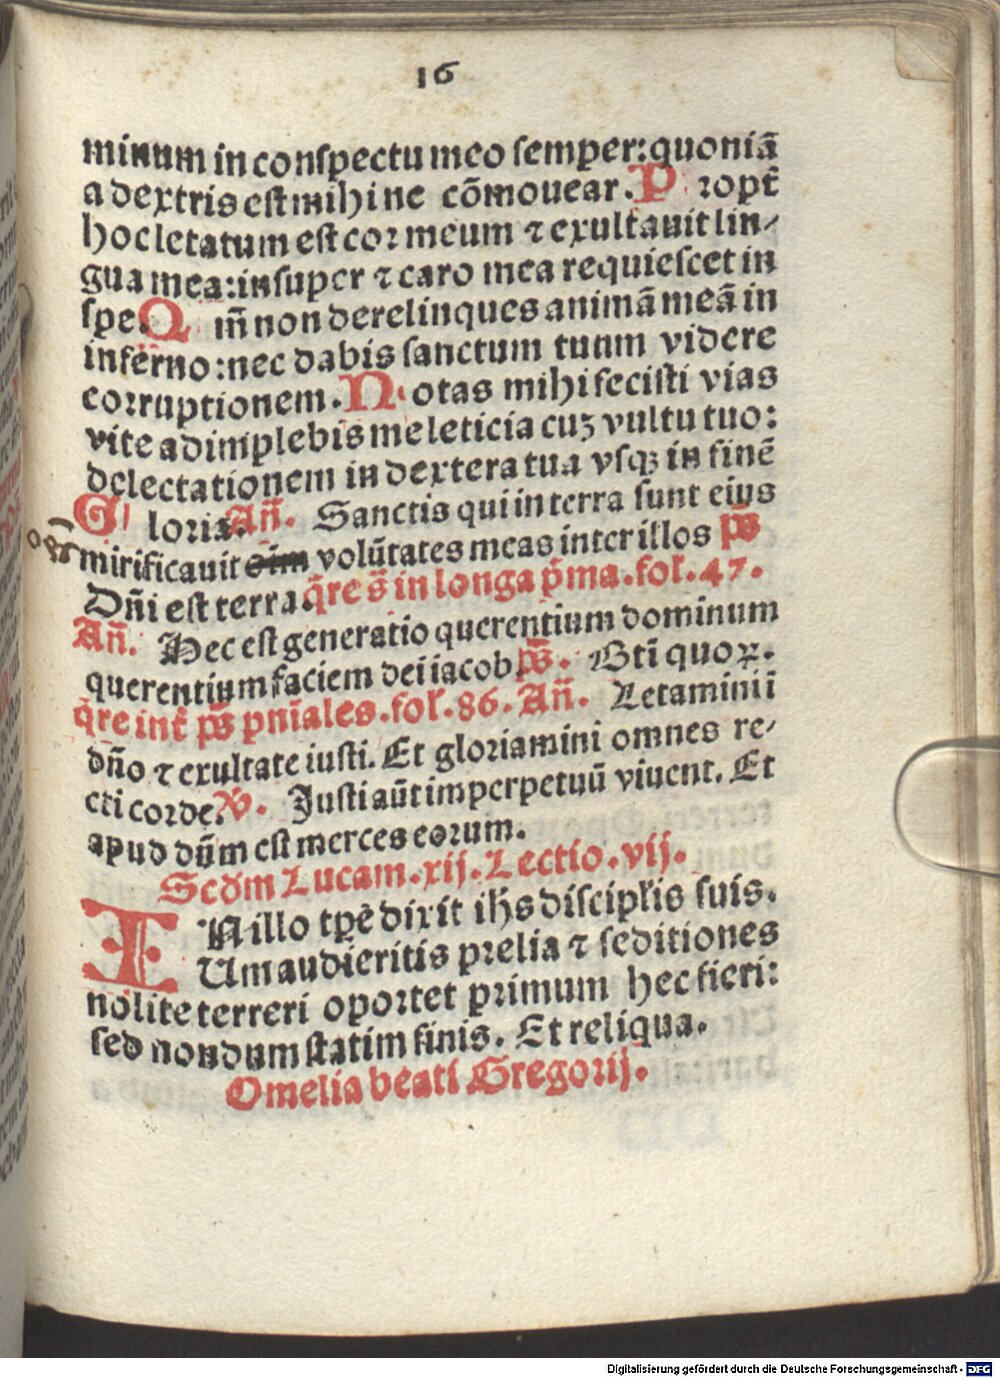 16
minum in conspectu meo semper: quoniā
a dextris est mihi ne cōmouear. P ropt̄
hoc letatum est cor meum ⁊ exultauit lin-
gua mea: insuper ⁊ caro mea requiescet in
spe. Q m̄ non derelinques animā meā in
inferno: nec dabis sanctum tuum videre
corruptionem. N otas mihi fecisti vias
vite adimplebis me leticia cuꝫ vultu tuo:
delectationem in dextera tua vsqꝫ in finē
G loria. Añ. Sanctis qui in terra sunt eius
mirificauit oīm volūtates meas inter illos p̄s
Dñi est terra. q̄re s̄ in longa p̄ma. fol. 47.
Añ. Hec est generatio querentium dominum
querentium faciem dei iacob. p̄s. Bt̄i quoꝝ.
q̄re int̄ p̄s pn̄iales. fol. 86. Añ. Letamini i
dño ⁊ exultate iusti. Et gloriamini omnes re-
cti corde. V̄. Justi aūt imperpetuū viuent. Et
apud dūm est merces eorum.
Scdm Lucam. xij. Lectio. vij.
IN illo tꝑe dixit ihs disciplis suis.
Cum audieritis prelia ⁊ seditiones
nolite terreri oportet primum hec fieri:
sed nondum statim finis. Et reliqua.
Omelia beati Gregorij.
Digitalisierung gefördert durch die Deutsche Forschungsgemeinschaft - DFG